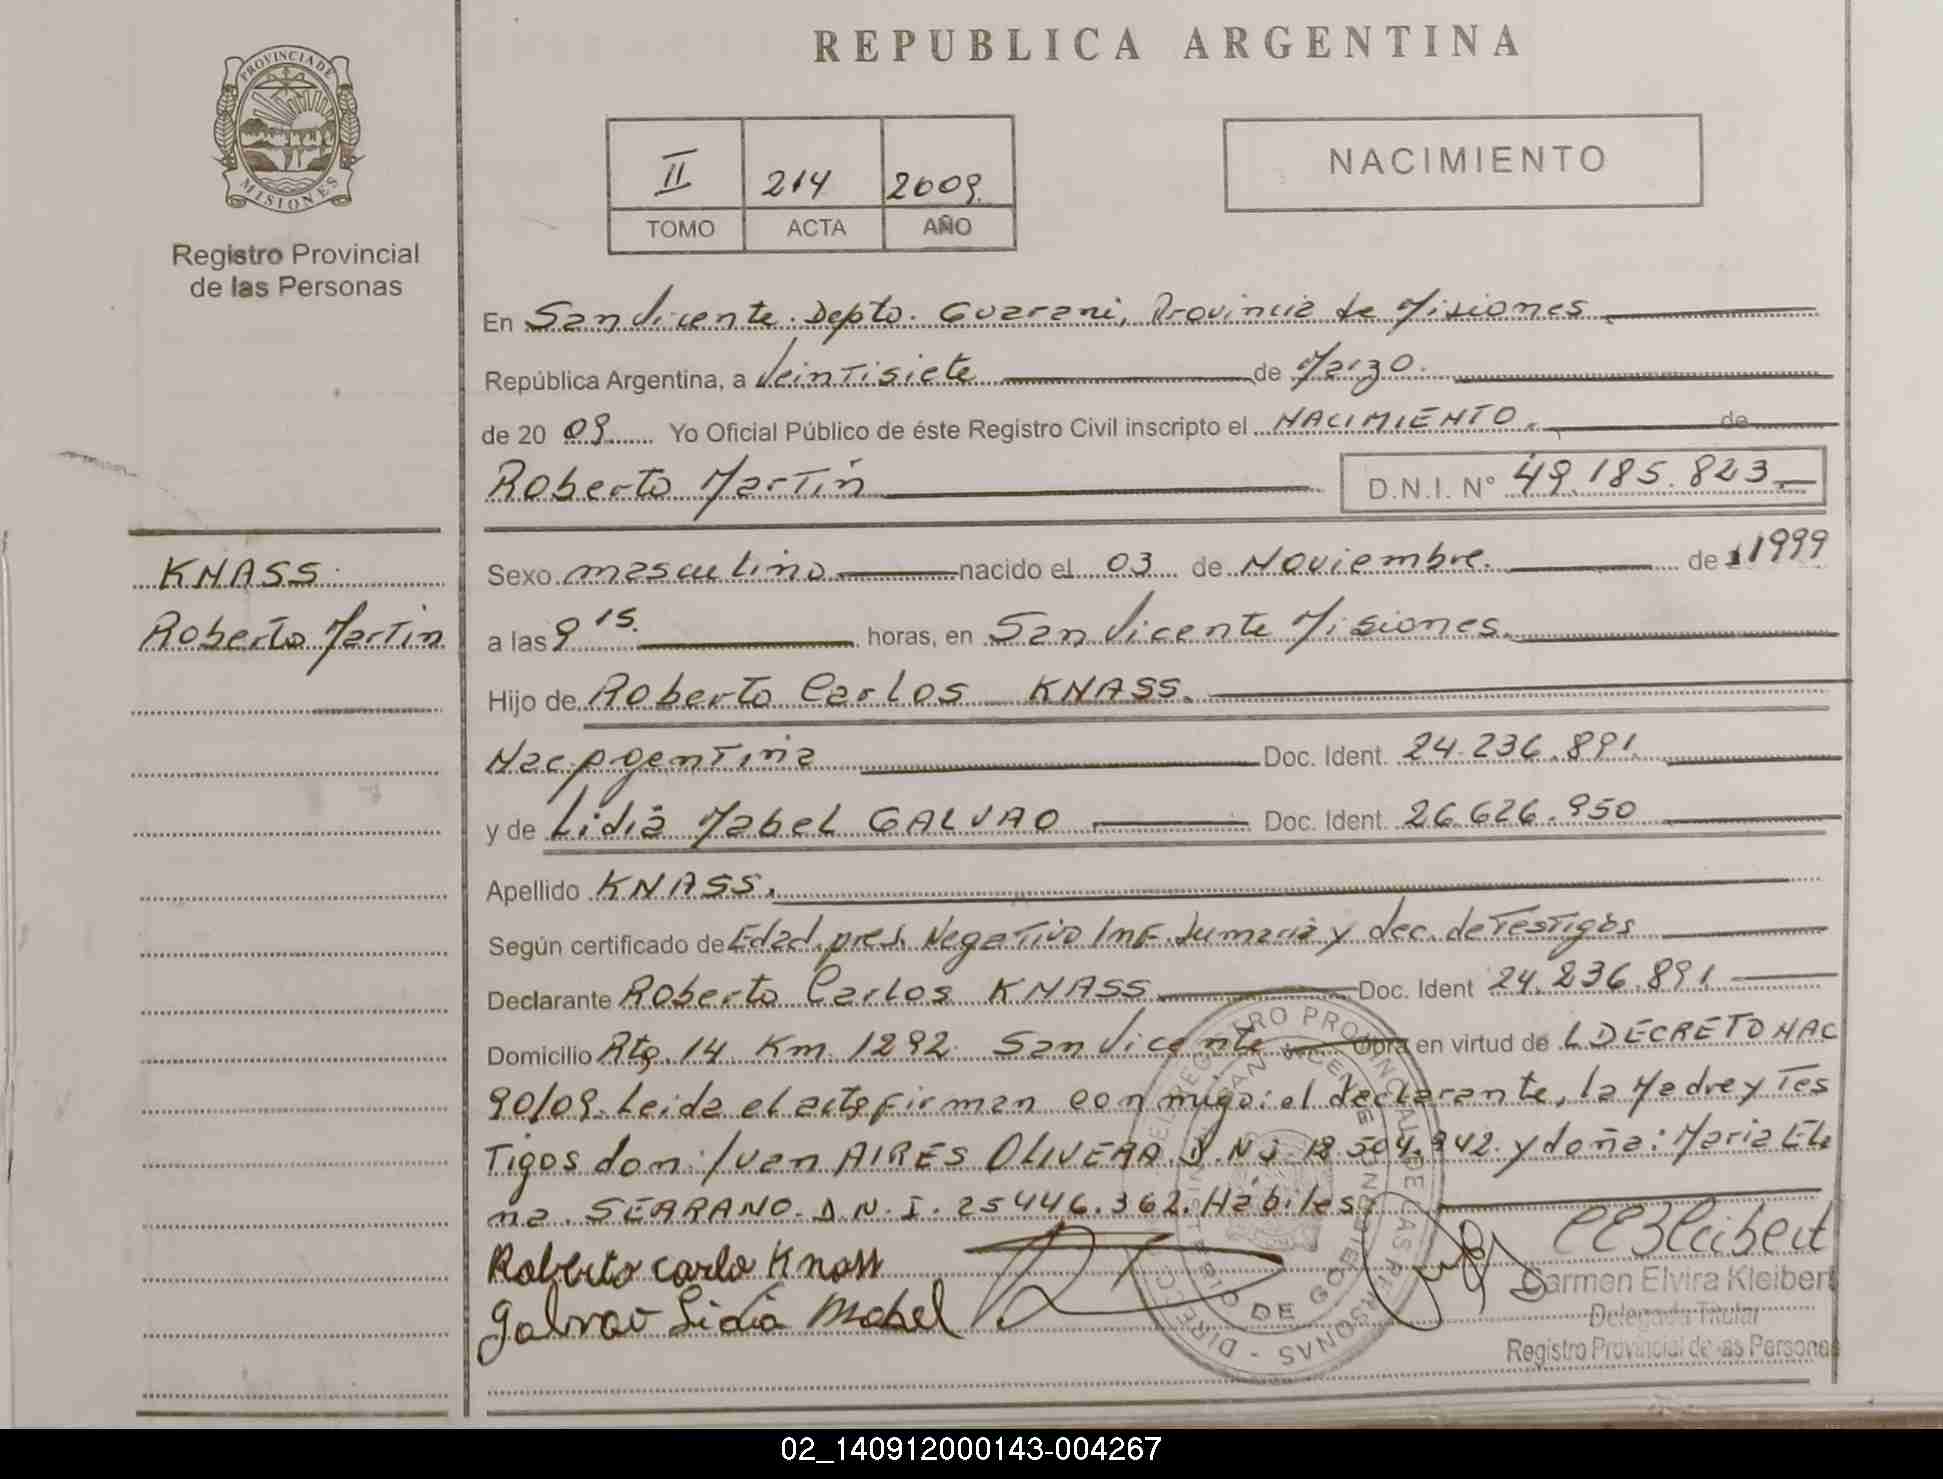 REPUBLICA ARGENTINA
PROVINCIA DE
MISIONES
Registro Provincial
de las Personas
II 214 2009.
TOMO ACTA AÑO
NACIMIENTO
En San Vicente. Depto. Guarani, Provincia de Misiones
República Argentina, a Veintisiete de Marzo.
de 20 09 Yo Oficial Público de éste Registro Civil inscripto el NACIMIENTO. de
Roberto Martin D.N.I. N° 49.185.823.
KNASS
Roberto Martin
Sexo masculino nacido el 03 de Noviembre. de 1999
a las 9 15. horas, en San Vicente Misiones.
Hijo de Roberto Carlos KNASS.
Nac. Argentina Doc. Ident. 24.236.891.
y de Lidia Mabel GALVAO Doc. Ident. 26.626.950
Apellido KNASS.
Según certificado de Edad. pres. Negativo Inf. Sumaria y dec. de Testigos
Declarante Roberto Carlos KNASS Doc. Ident 24.236.891
Domicilio Rta. 14 Km 1292 San Vicente Obra en virtud de L DECRETO NAC
90/09. Leida el acta firman conmigo: el declarante, la Madre y Tes
Tigos don: Juan AIRES OLIVERA. D.N.I. 18.504.942. y doña: Maria Ele
na. SERRANO. D.N.I. 25446.362. Hábiles
Roberto carlo Knass
Galvao Lidia Mabel
CEKleibert
Carmen Elvira Kleibert
Delegada Titular
Registro Provincial de las Personas
02_140912000143-004267